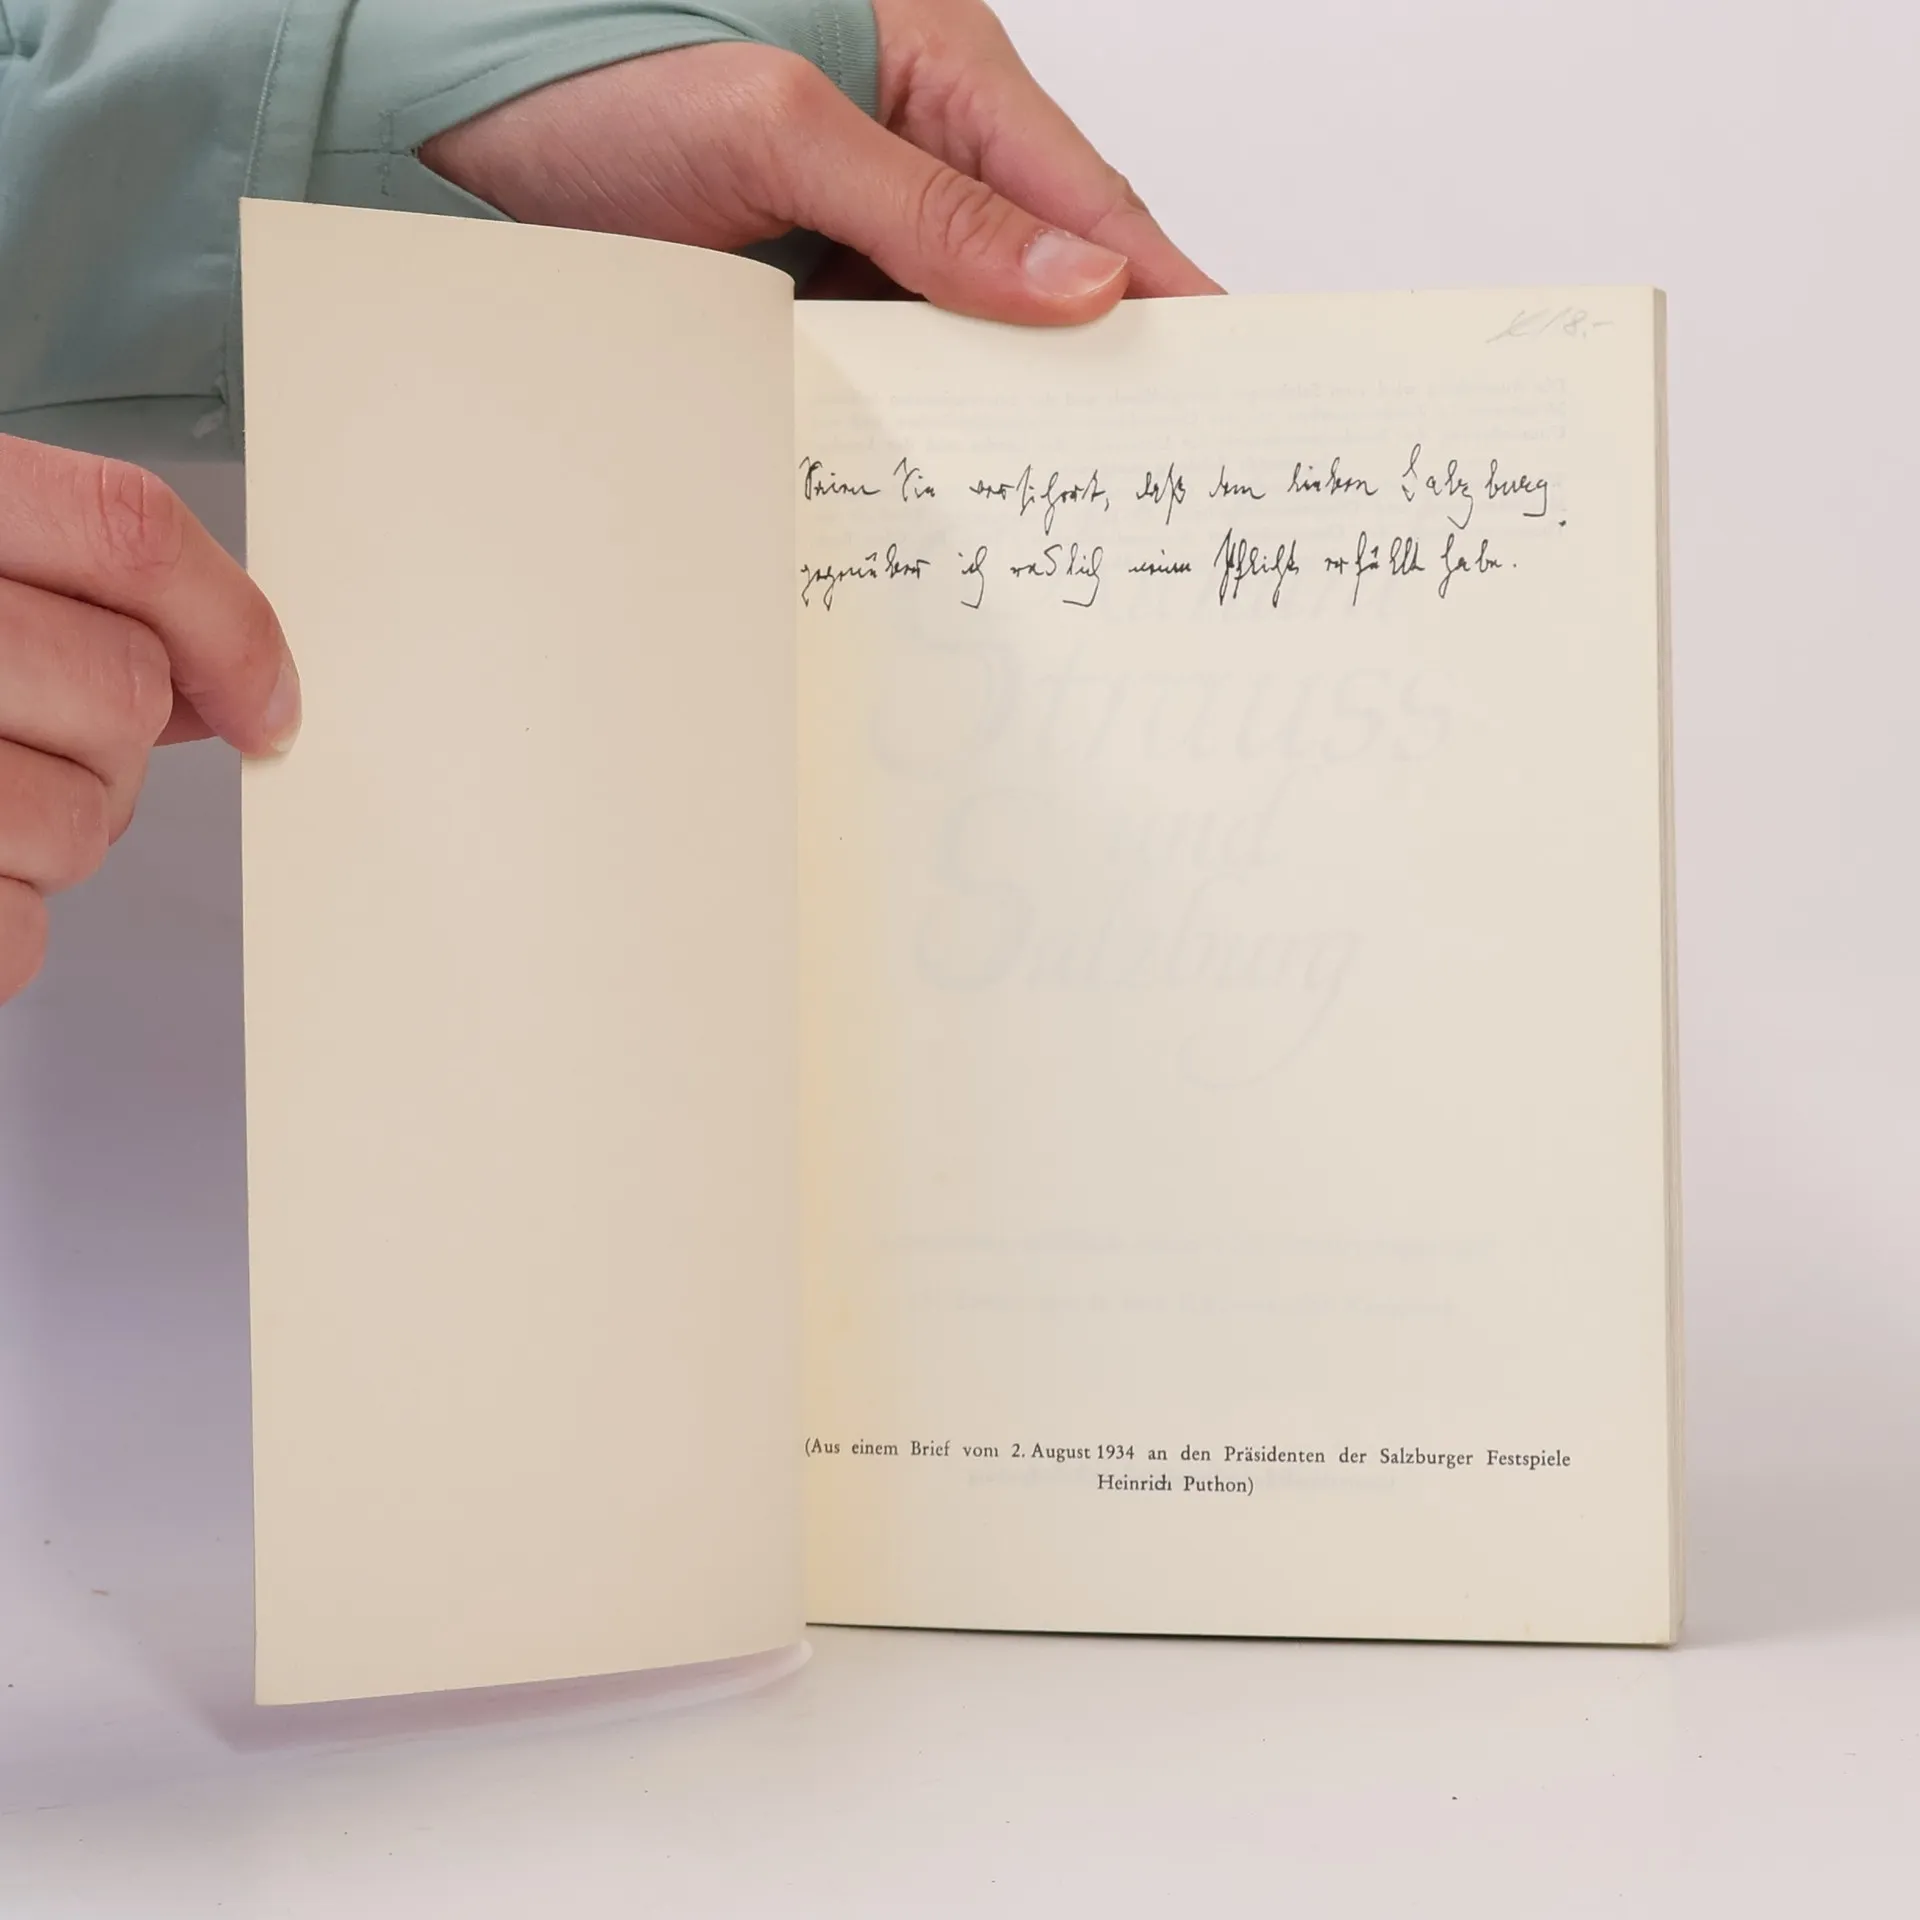 18.-
Seien Sie versichert, daß dem lieben Salzburg
gegenüber ich redlich meine Pflicht erfüllt habe.
Strauss
und
Salzburg
(Aus einem Brief vom 2. August 1934 an den Präsidenten der Salzburger Festspiele
Heinrich Puthon)